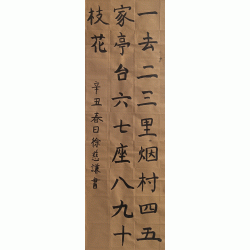 一去二三里烟村四五
家亭台六七座八九十
枝花
辛丑春日徐
書